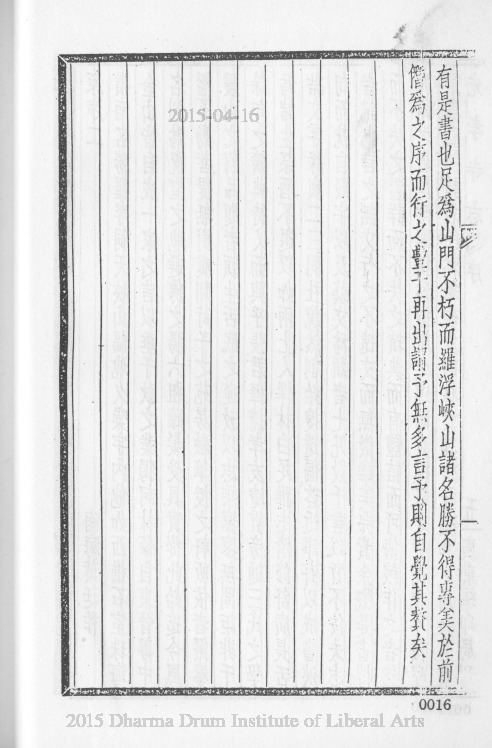 有是書也足為山門不朽而羅浮峽山諸名勝不得專美於前
僭為之序而行之豐干再出謂予無多言予則自覺其贅矣
2015-04-16
0016
2015 Dharma Drum Institute of Liberal Arts